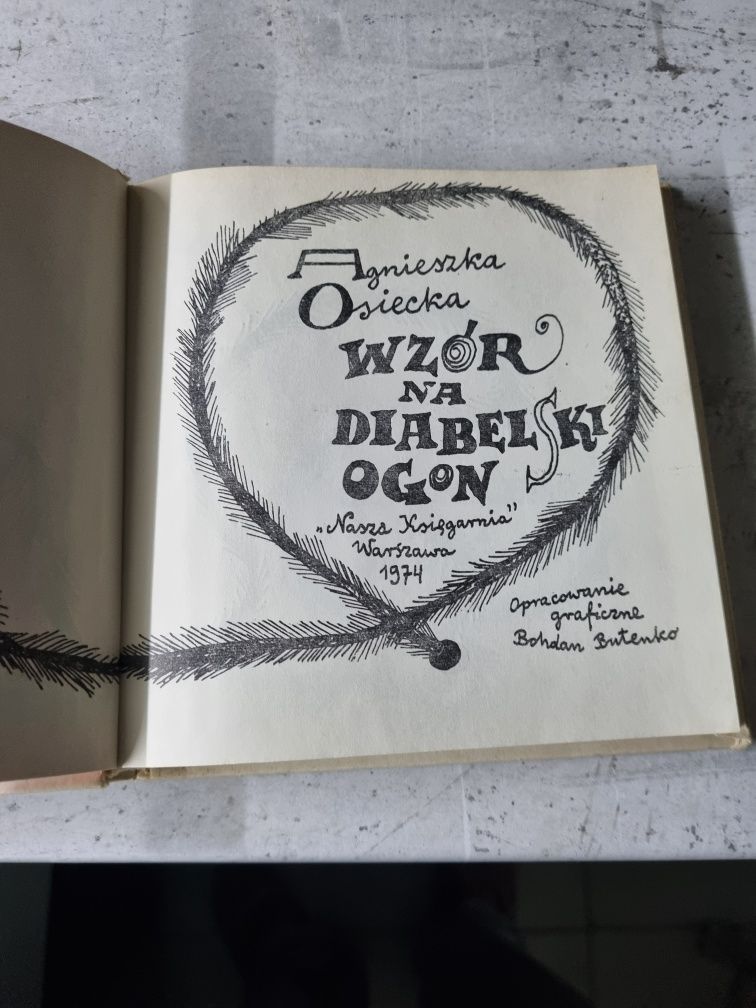 Agnieszka
Osiecka
WZÓR
NA
DIABELSKI
OGON
„Nasza Księgarnia”
Warszawa
1974
Opracowanie
graficzne
Bohdan Butenko